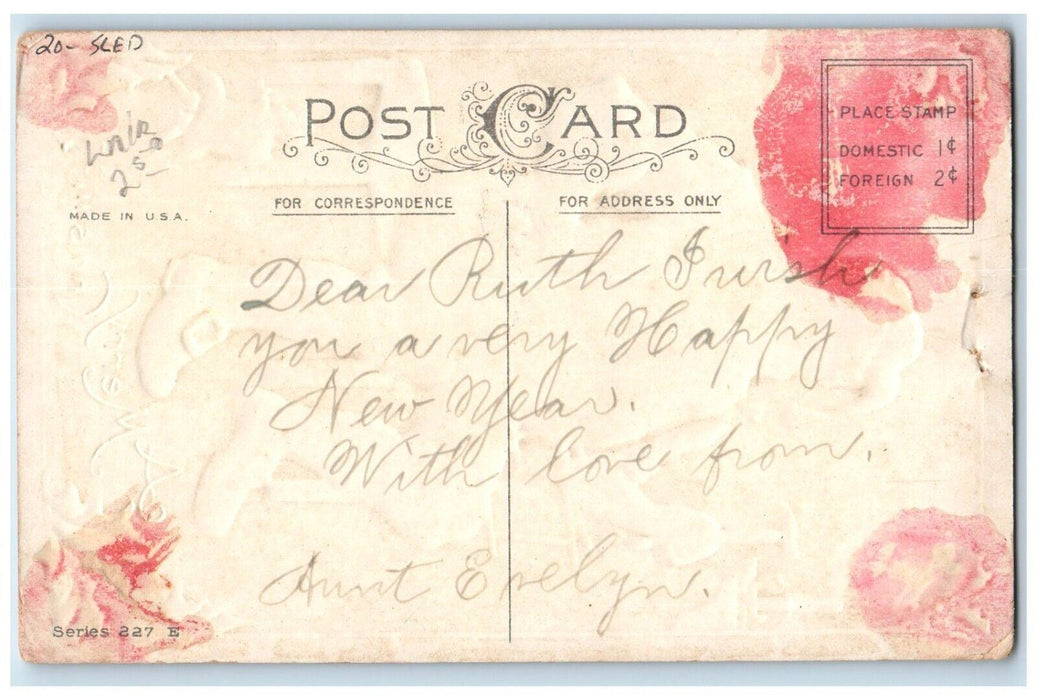 20- SLED
25
POST CARD
PLACE STAMP
DOMESTIC 1¢
FOREIGN 2¢
MADE IN U.S.A.
FOR CORRESPONDENCE
FOR ADDRESS ONLY
Dear Ruth I wish
you a very Happy
New Year.
With love from.
Aunt Evelyn.
Series 227 E